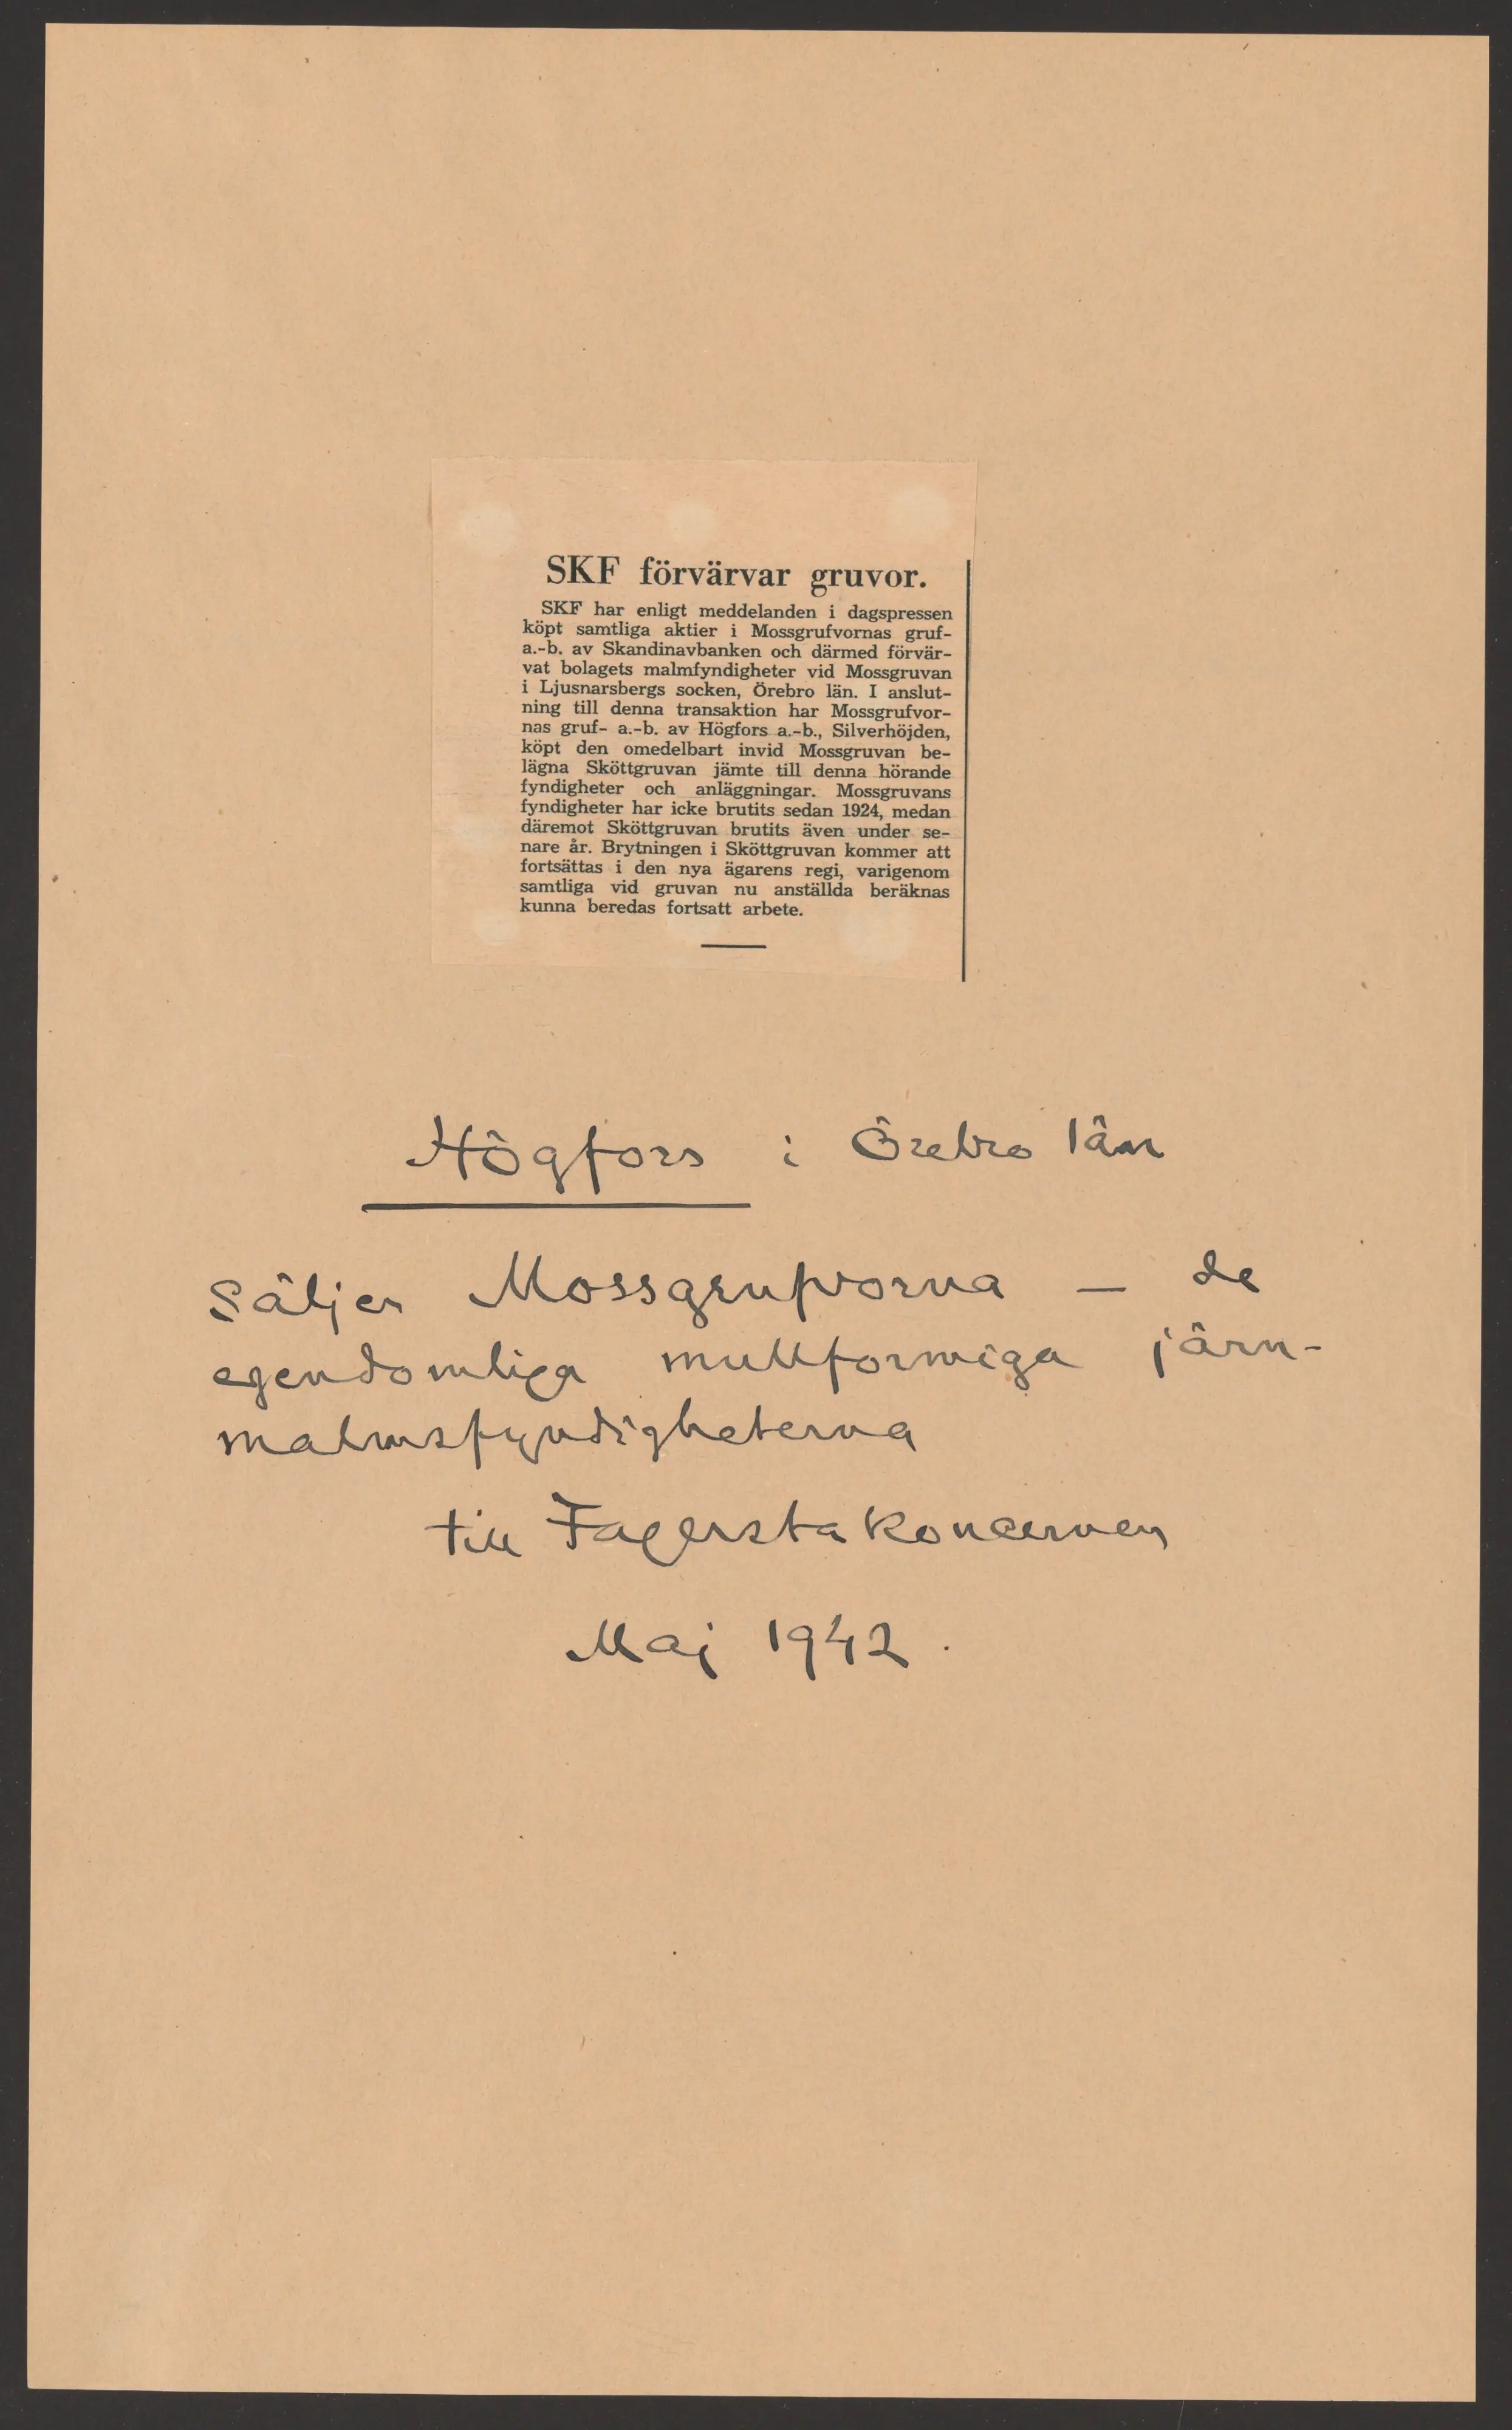 SKF förvärvar gruvor.
SKF har enligt meddelanden i dagspressen
köpt samtliga aktier i Mossgrufvornas gruf-
a.-b. av Skandinavbanken och därmed förvär-
vat bolagets malmfyndigheter vid Mossgruvan
i Ljusnarsbergs socken, Örebro län. I anslut-
ning till denna transaktion har Mossgrufvor-
nas gruf- a.-b. av Högfors a.-b., Silverhöjden,
köpt den omedelbart invid Mossgruvan be-
lägna Sköttgruvan jämte till denna hörande
fyndigheter och anläggningar. Mossgruvans
fyndigheter har icke brutits sedan 1924, medan
däremot Sköttgruvan brutits även under se-
nare år. Brytningen i Sköttgruvan kommer att
fortsättas i den nya ägarens regi, varigenom
samtliga vid gruvan nu anställda beräknas
kunna beredas fortsatt arbete.
Högfors i Örebro län
säljer Mossgrufvorna – de
egendomliga mullformiga järn-
malmsfyndigheterna
till Fagerstakoncernen
Maj 1942.